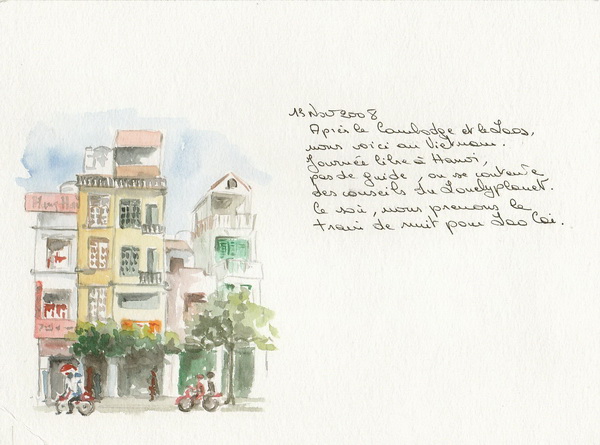 13 Nov 2008
Après le Cambodge et le Laos,
nous voici au Vietnam.
Journée libre à Hanoï,
pas de guide, on se contente
des conseils du Lonelyplanet.
Ce soir, nous prenons le
train de nuit pour Lao Cai.